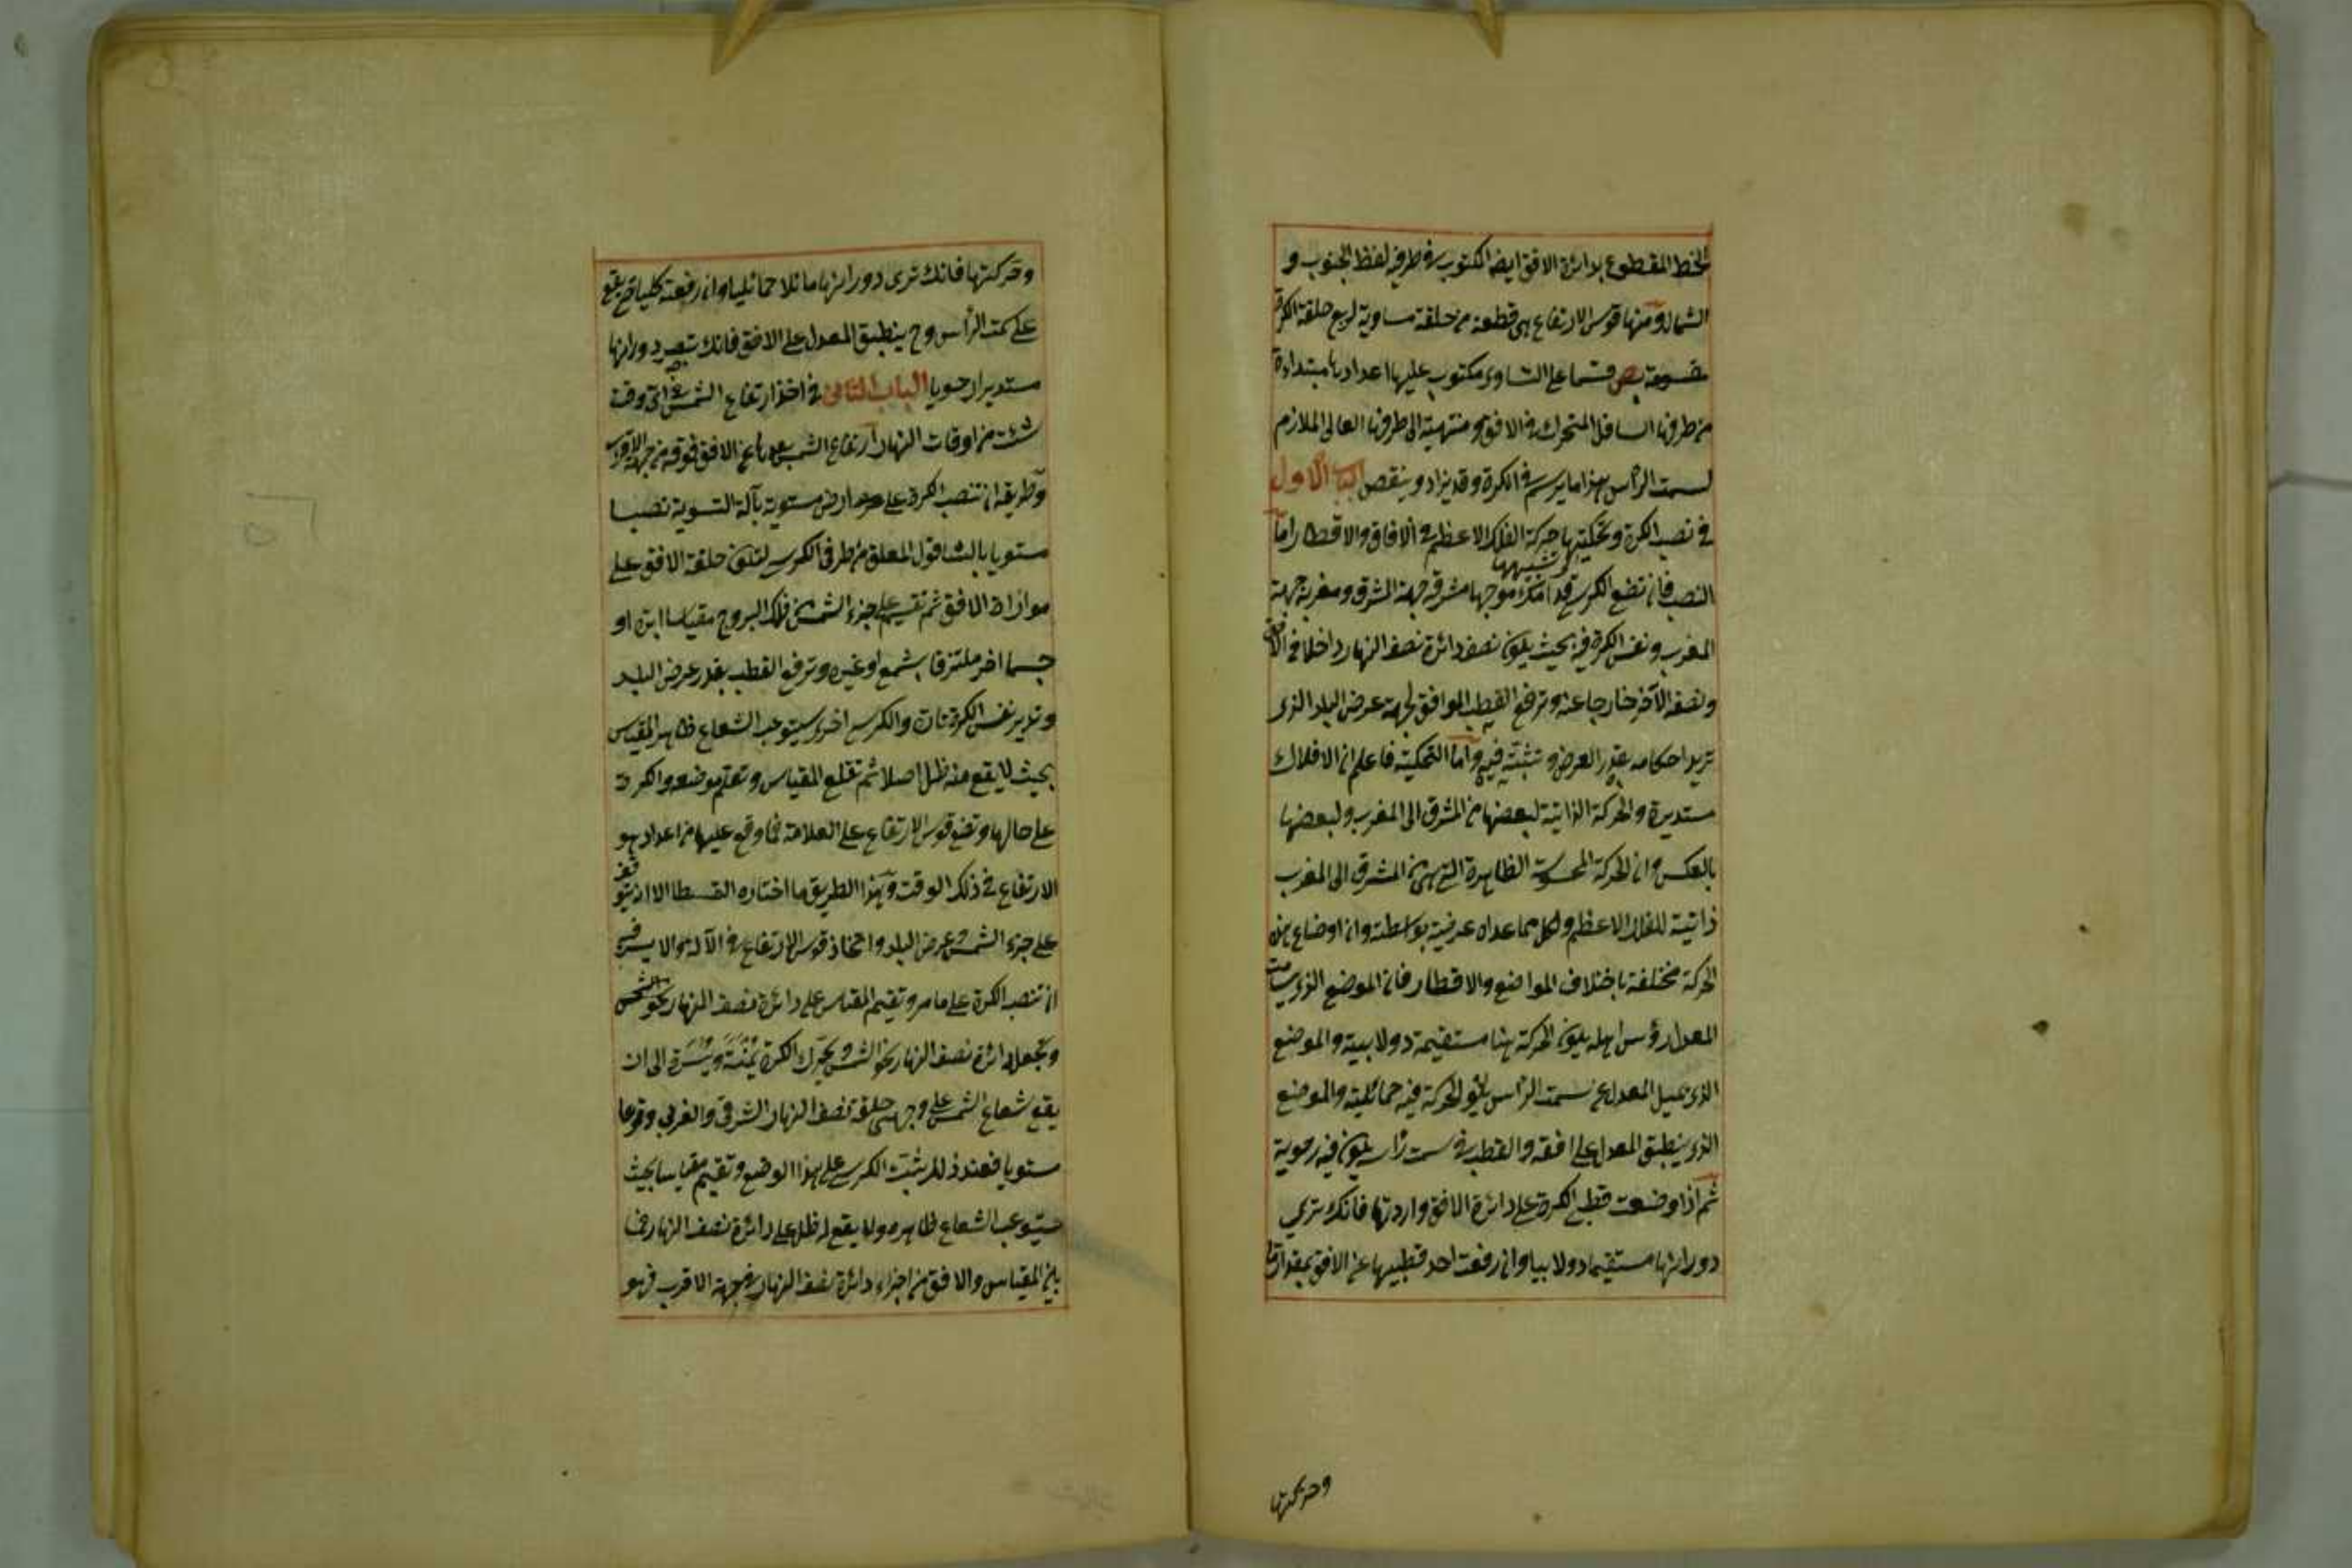 الخط المقطوع بدائرة الافق ايضا المكتوب في طرفيه لفظ الجنوب و
الشمال ومنها قوس الارتفاع هي قطعة من حلقة مساوية لربع حلقة الكرة
مقسومة بص قسما على التساوي مكتوب عليها اعدادها مبتداءة
من طرفها السافل المتحرك في الافق ومنتهية الى طرفها العالي الملازم
لسمت الرأس هذا ما يرسم في الكرة وقد يزاد وينقص الباب الاول
في نصب الكرة وتحكيتها حركة الفلك الاعظم في الافاق والاقطار اما
النصب فان تضع الكرسي قدامك موجها مشرقه جهة المشرق ومغربه جهة
المغرب ونفس الكرة فيه بحيث يكون نصف دائرة نصف النهار داخلا في الافق
ونصفه الآخر خارجا عنه وترفع القطب الموافق لجهة عرض البلد الذي
تريد احكامه بقدر العرض وتثبته فيه واما التحكية فاعلم ان الافلاك
مستديرة والحركة الذاتية لبعضها من المشرق الى المغرب ولبعضها
بالعكس وان الحركة المحسوسة الظاهرة التي هي من المشرق الى المغرب
ذاتية للفلك الاعظم ولكل مما عداه عرضية بواسطته وان اوضاع هذه
الحركة مختلفة باختلاف المواضع والاقطار فان الموضع الذي سامت
المعدل رؤس اهله يكون الحركة هنا مستقيمة دولابية والموضع
الذي يميل المعدل عن سمت الرأس يكون الحركة فيه حمائلية والموضع
الذي ينطبق المعدل على افقه والقطب في سمت رأسه يكون فيه رحوية
ثم اذا وضعت قطبي الكرة على دائرة الافق وادرتها فانك ترى
دورانها مستقيما دولابيا وان رفعت احد قطبيها عن الافق بمقدار ما
وحركتها
وحركتها فانك ترى دورانها مائلا حمائليا وان رفعته كليا حتى يقع
على سمت الرأس وح ينطبق المعدل على الافق فانك تبصر دورانها
مستديرا رحويا الباب الثاني في اخذ ارتفاع الشمس في اي وقت
شئت من اوقات النهار ارتفاع الشمس بعدها عن الافق فوقه من جهة الاقرب
وطريقه ان تنصب الكرة على ارض مستوية بآلة التسوية نصبا
مستويا بالشاقول المعلق من طرفي الكرسي لتكون حلقة الافق على
موازاة الافق ثم تقيم على جزء الشمس من فلك البروج مقياسا ابرة او
جسما اخر ملتزقا بشمع او غيره وترفع القطب بقدر عرض البلد
وتدير نفس الكرة تارة والكرسي اخرى ليستوعب الشعاع ظاهر المقياس
بحيث لا يقع منه ظل اصلا ثم تقلع المقياس وتعلم موضعه والكرة
على حالها وتضع قوس الارتفاع على العلامة فما وقع عليها من اعداد هو
الارتفاع في ذلك الوقت وهذا الطريق ما اختاره القسطا الا انه يتوقف
على جزء الشمس وعرض البلد واتخاذ قوس الارتفاع في الآلة والايسر فيه
ان تنصب الكرة على ما مر وتقيم المقياس على دائرة نصف النهار نحو الشمس
وتجعل دائرة نصف النهار نحو الشمس وتحرك الكرة يمنة ويسرة الى ان
يقع شعاع الشمس على وجهي حلقة نصف النهار الشرقي والغربي وقوعا
مستويا فعند ذلك يثبت الكرسي على هذا الوضع وتقيم مقياسا بحيث
يستوعب الشعاع ظاهره ولا يقع له ظل على دائرة نصف النهار فما
بين المقياس والافق من اجزاء دائرة نصف النهار في جهة الاقرب فهو